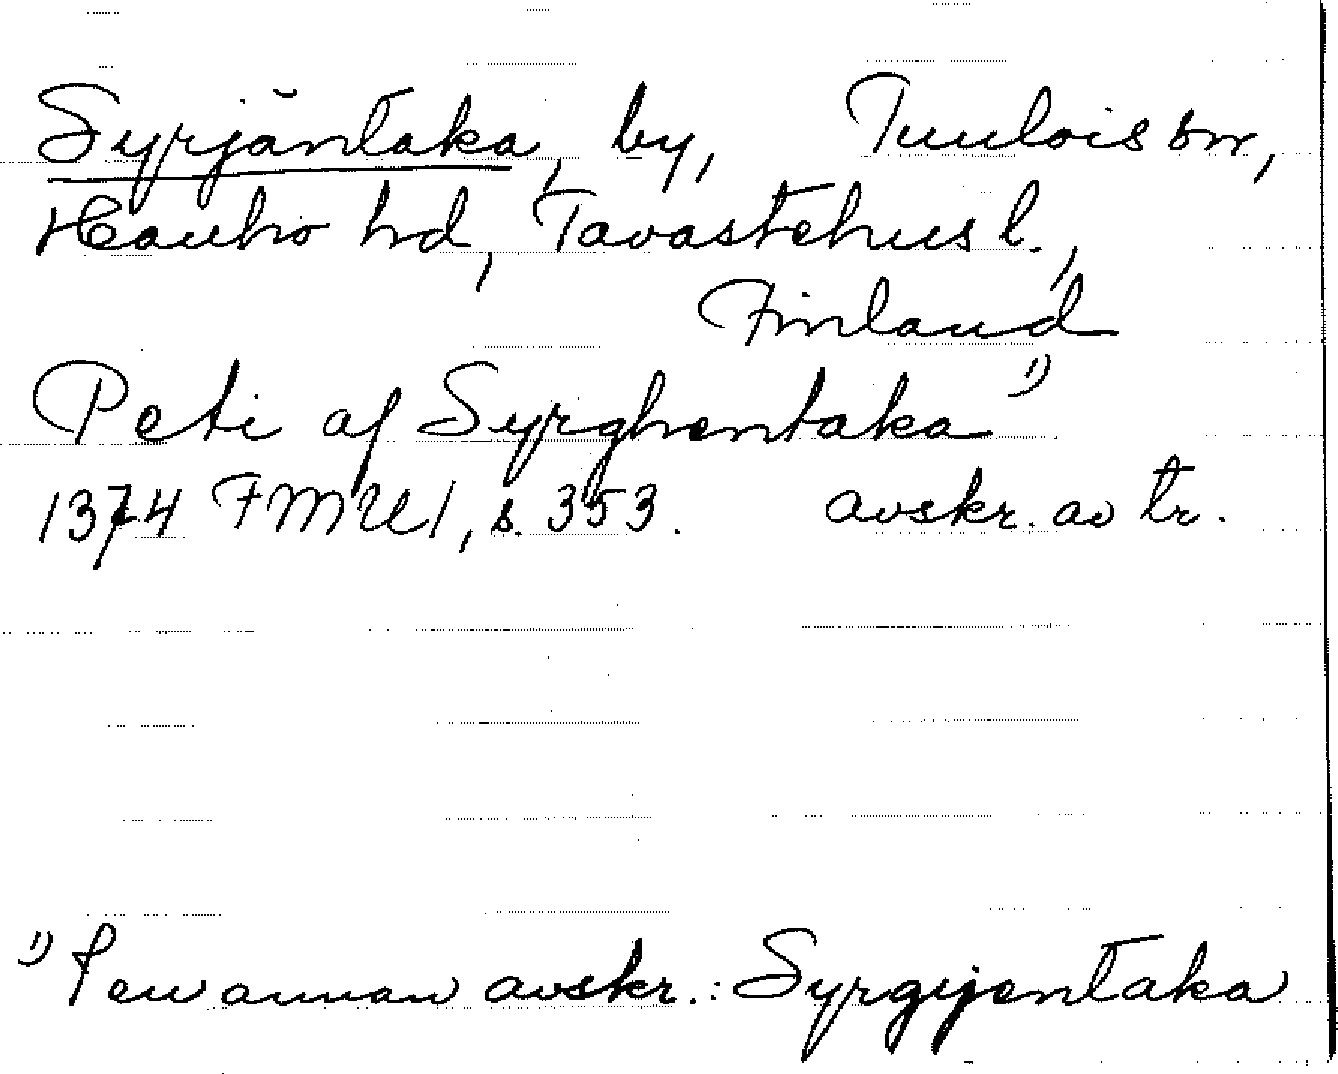 Syrjäntaka, by, Tuulois sn,
Hauho hd, Tavastehus l.,
Finland
Peti af Syrghentaka 1)
1374 FMU 1, s. 353. avskr. av tr.
1) I en annan avskr.: Syrgijentaka